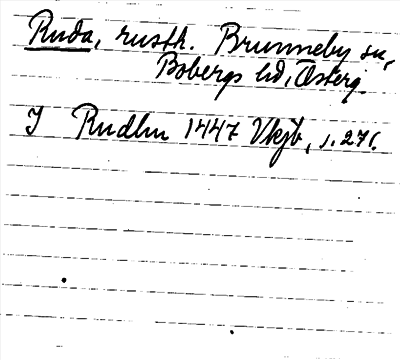 Ruda, rusth. Brunneby sn,
Bobergs hd, Österg.
I Rudhu 1447 Vkjb, s. 271.